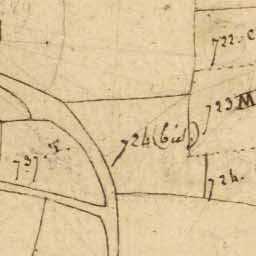 722. C
723 M
724 (bis.)
724.
737. T.